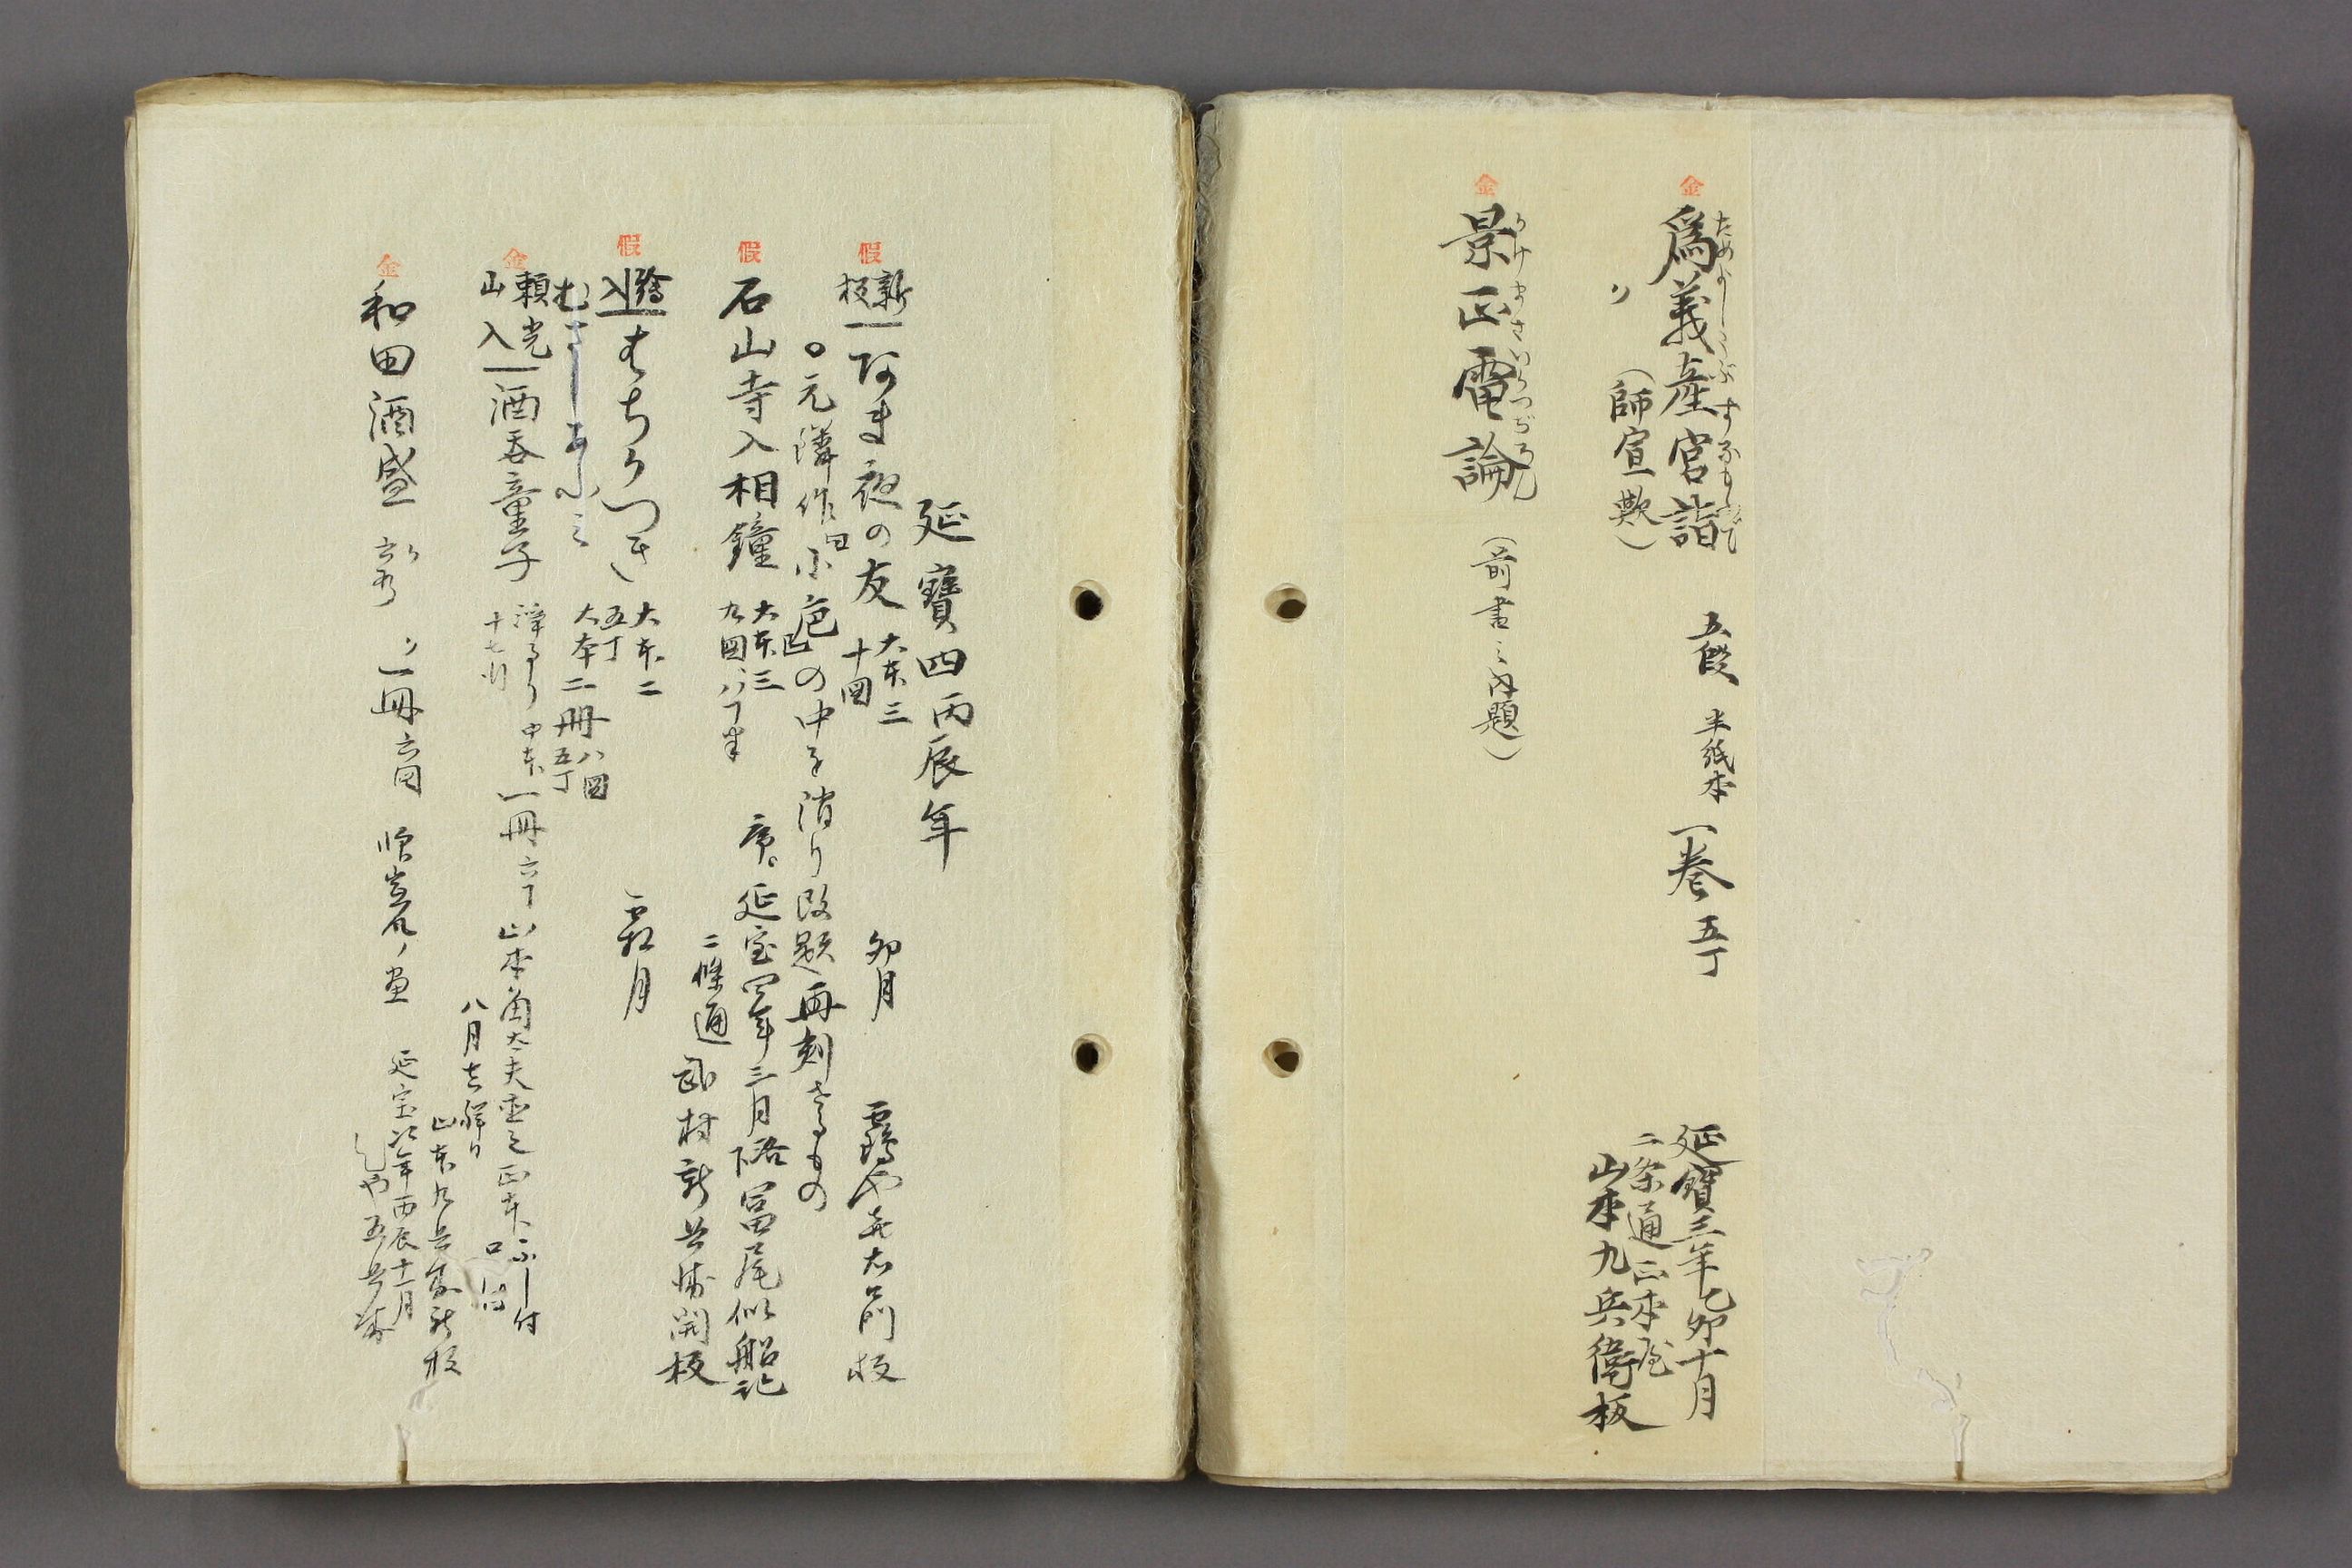 金
爲義産宮詣 五段 半紙本 一巻 五丁 延寶三年乙卯十月
〃 (師宣歟) 二条通正本屋
山本九兵衛板
金
景正電論 (前書之内題)
延寶四丙辰年
假
新板 おま夜の友 大本三 十図 卯月 靏や喜右衛門板
○元隣作 小巵の中を消り改題再刻せるもの
假
石山寺入相鐘 大本三 九図 八丁半 序。延宝四年三月 洛下 冨尾似船記
二條通 武村新兵衛開板
假
繪入 はちかつき 大本二 五丁 霜月
むさしあふミ 大本二冊 八図 五丁
金
頼光山入 酒呑童子 浄るり 中本 一冊 六丁 山本角太夫 正本 ふし付
十七行 八月吉祥日
山本九兵衛新板
金
和田酒盛 〃 一冊 六図 延宝四年丙辰十一月